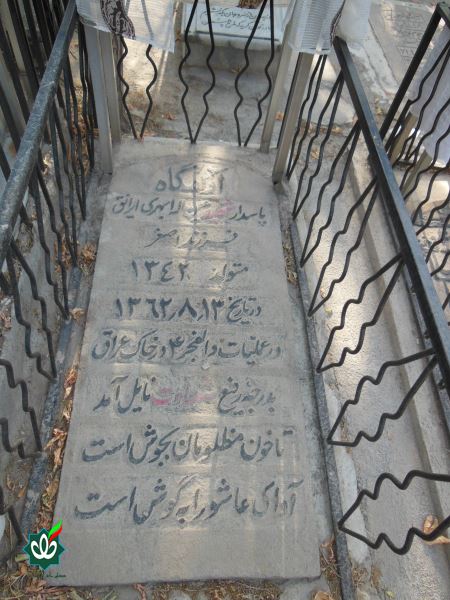 آرامگاه
پاسدار شهید امیری ایرانق
فرزند اصغر
متولد ۱۳۴۲
در تاریخ ۱۳۶۲،۸،۱۳
در عملیات والفجر ۴ در خاک عراق
بدرجه رفیع شهادت نایل آمد
تا خون مظلومان بجوش است
آوای عاشورا به گوش است